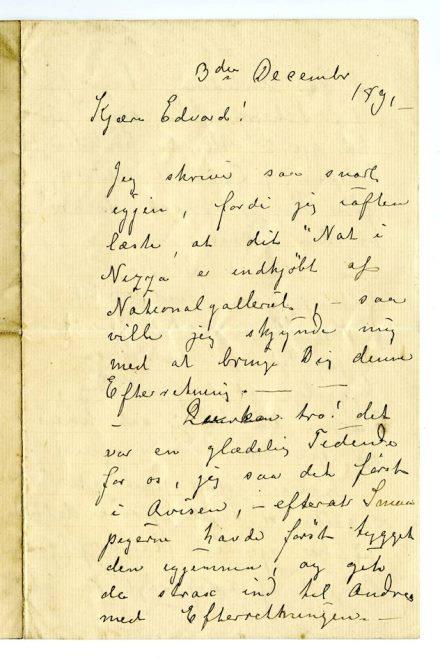 3die December
1891 —
Kjære Edvard!
Jeg skriver saa snart
igjen, fordi jeg iaften
læste, at dit "Nat i
Nizza" er indkjøbt af
Nationalgalleriet, – saa
ville jeg skynde mig
med at bringe Dig denne
Efterretning. — —
— tro! det
var en glædelig Tidende
for os, jeg saa det først
i Avisen, – efterat Smaa
pigerne havde først tygget
den igjennem, og gik
da strax ind til Andreas
med Efterretningen. —